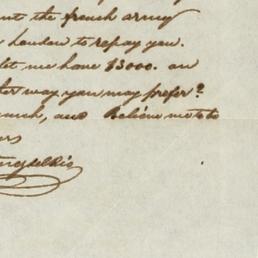 the french army
London to repay you.
let me have $3000. on
way you may prefer?
much, and Believe me to be